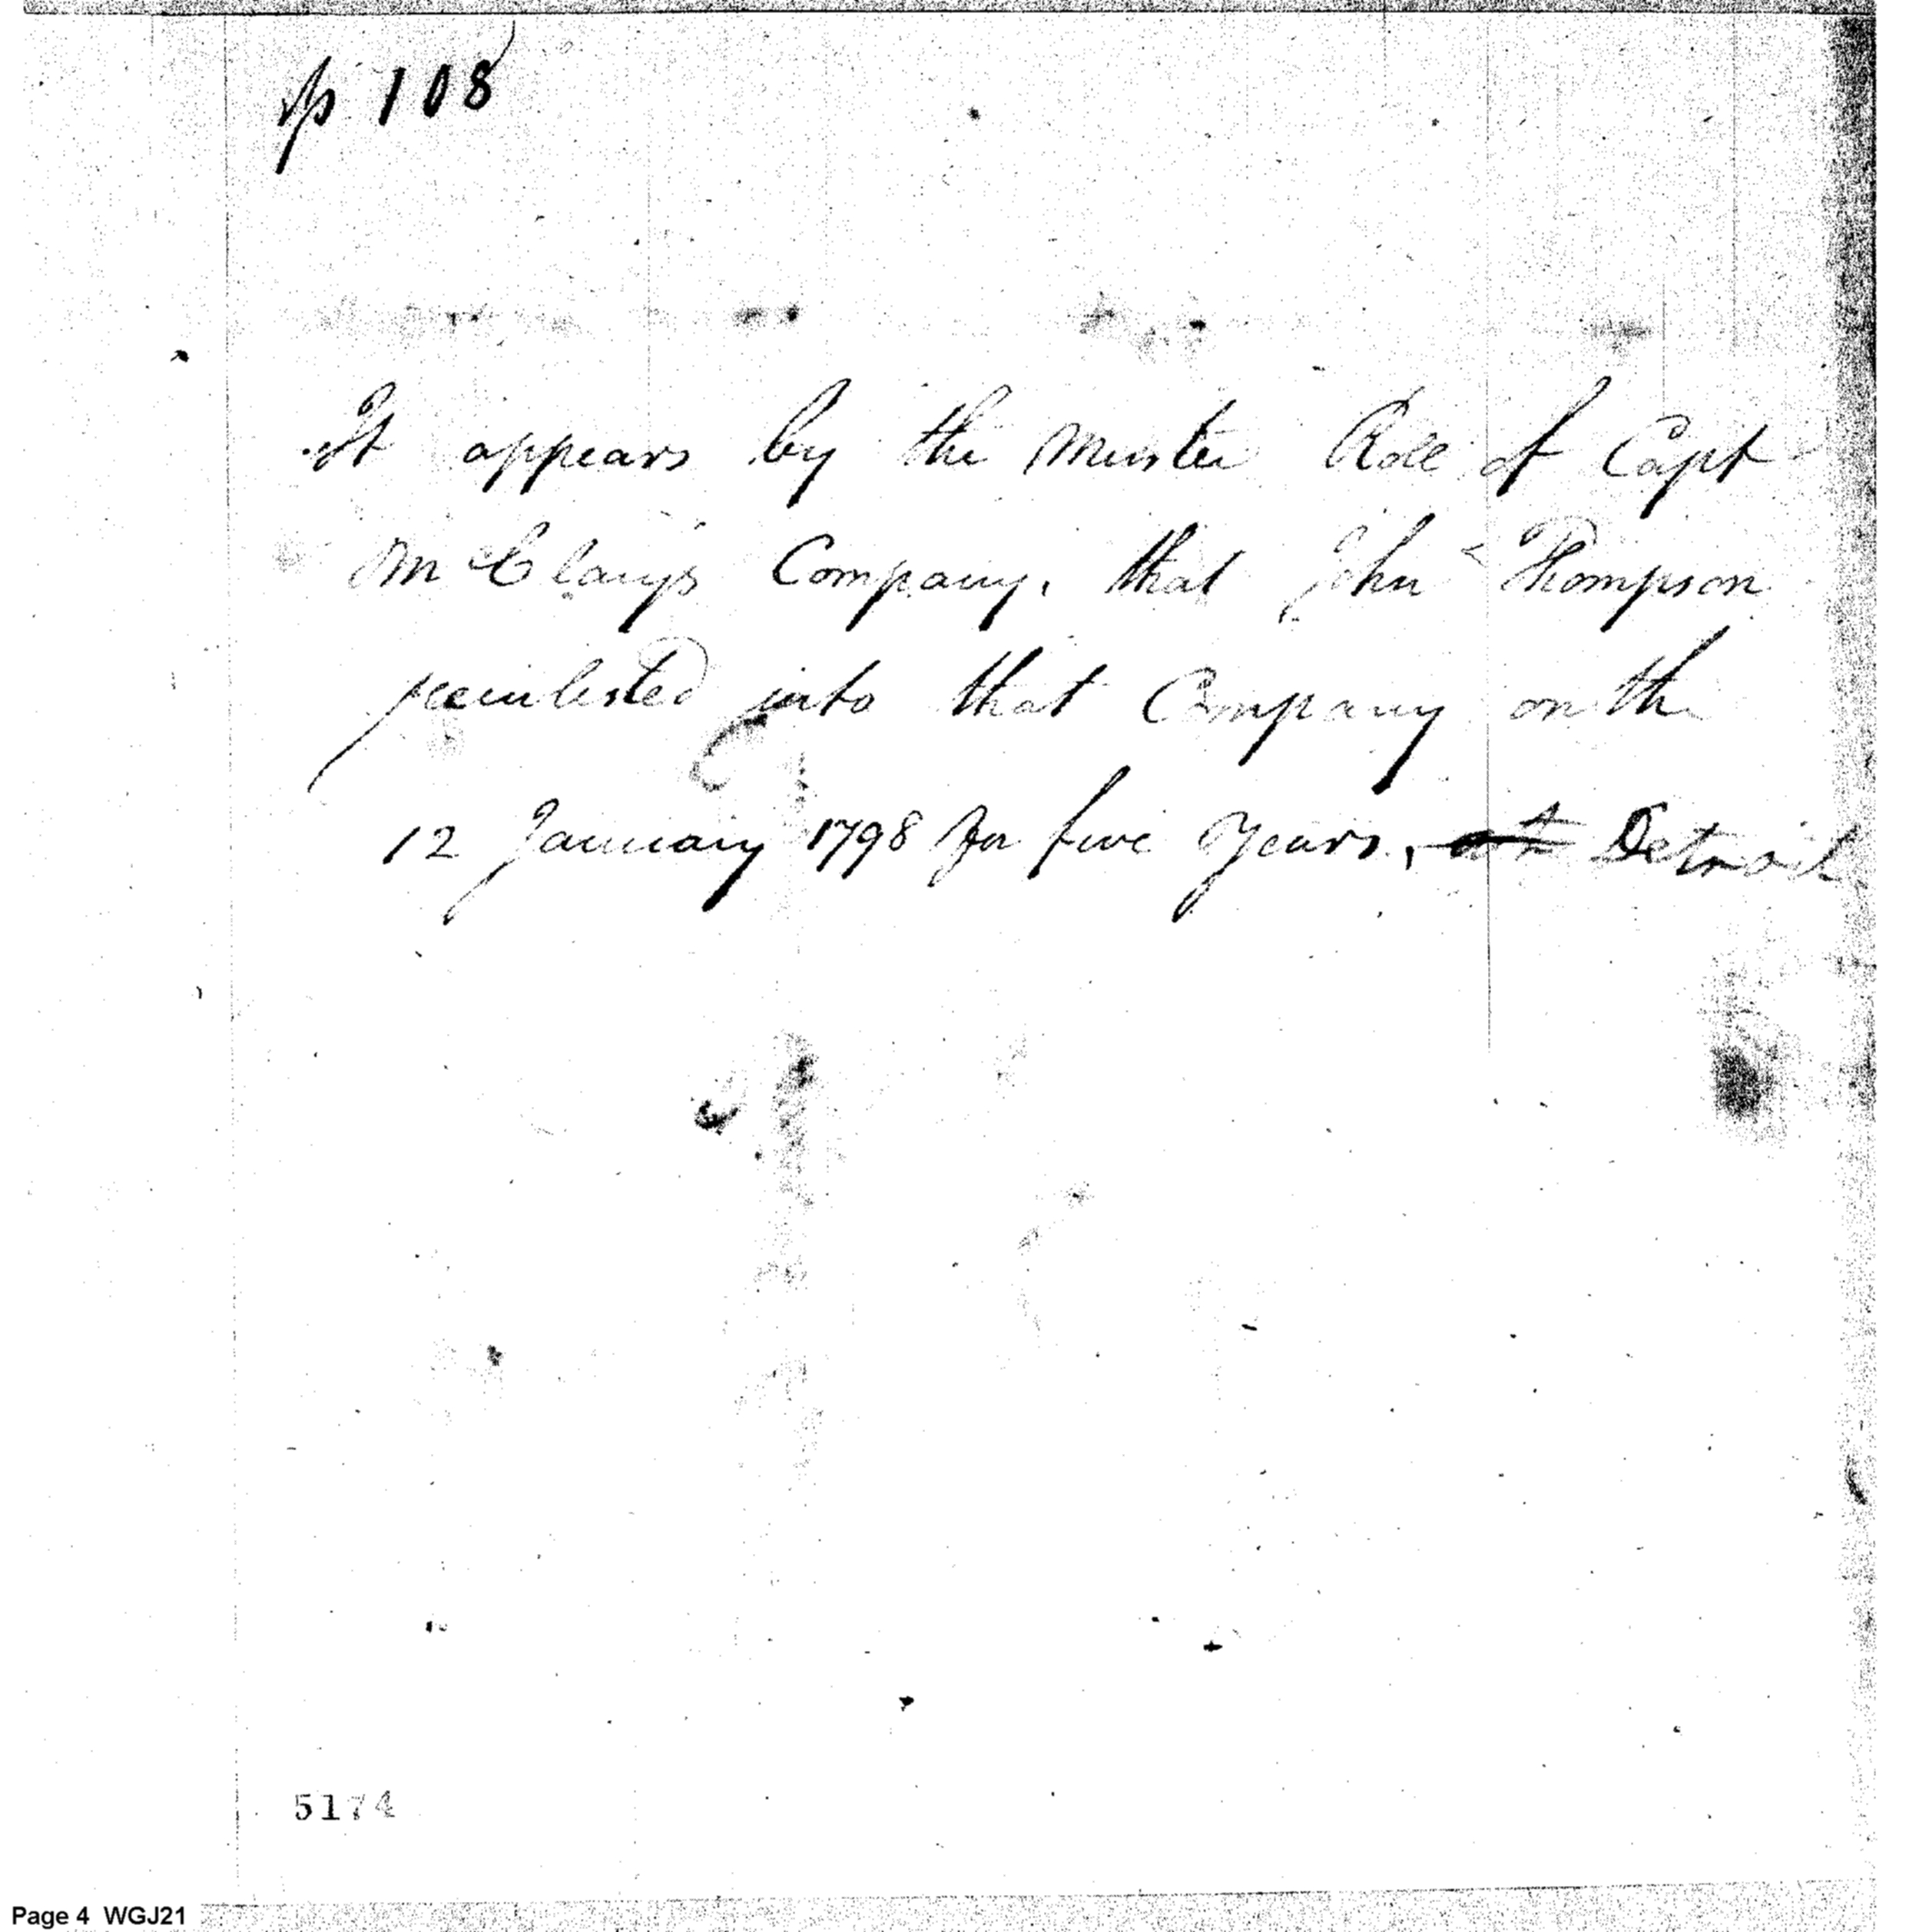 p 108
It appears by the Muster Roll of Capt
McClary's Company, that John Thompson
reenlisted into that Company on the
12 January 1798 for five Years, at Detroit
5174
Page 4 WGJ21